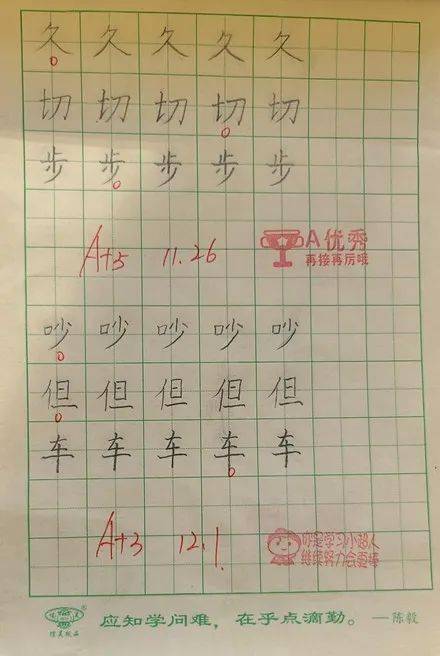 久 久 久 久 久
切 切 切 切 切
步 步 步 步 步
A+5 11.26 A优秀
再接再厉哦
吵 吵 吵 吵 吵
但 但 但 但 但
车 车 车 车 车
A+3 12.1 你是学习小超人
继续努力会更棒
应知学问难，在乎点滴勤。 —陈毅